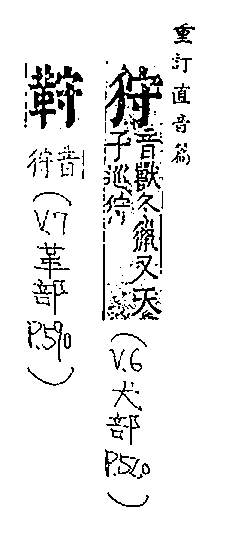 重訂直音篇
狩 音獸冬獵又天
子巡狩
(V.6 犬部 P.560)
𩊅 音狩
(V.7 革部 P.590)